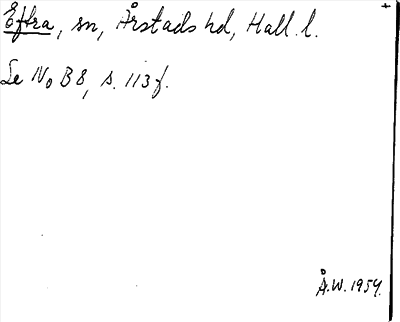 Eftra, sn, Årstads hd, Hall. l.
Se No B 8, s. 113 f.
Å.W. 1954.